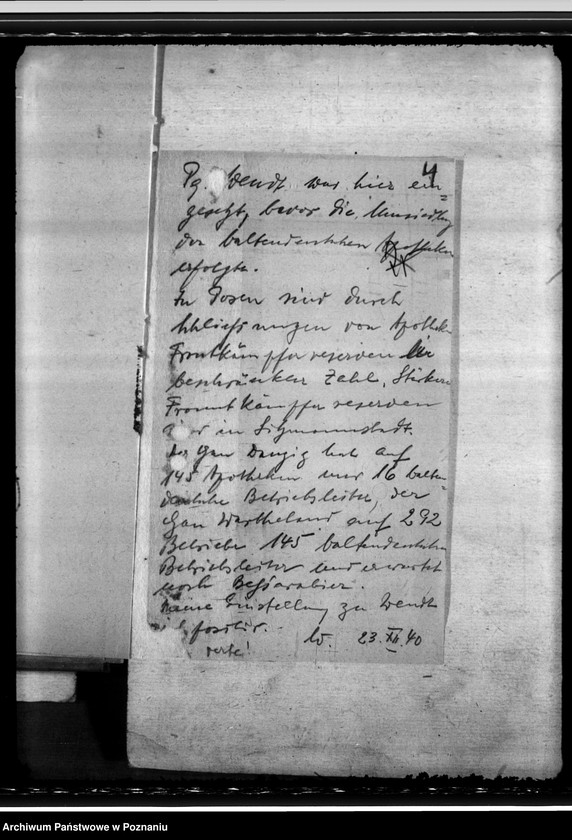 4
Pg. Wendt war hier ein=
gesetzt, bevor die Umsiedlung
der baltendeutschen Apotheker
erfolgte.
In Posen sind durch
Schließungen von Apotheken
Frontkämpferreserven in
beschränkter Zahl, Stärkere
Frontkämpferreserven
in Litzmannstadt.
Der Gau Danzig hat auf
145 Apotheken nur 16 balten-
deutsche Betriebsleiter, der
Gau Wartheland auf 292
Betriebe 145 baltendeutsche
Betriebsleiter und erwartet
noch Beßarabier.
Meine Einstellung zu Wendt
ist positiv.
W. 23.XII.40
verte!
Archiwum Państwowe w Poznaniu